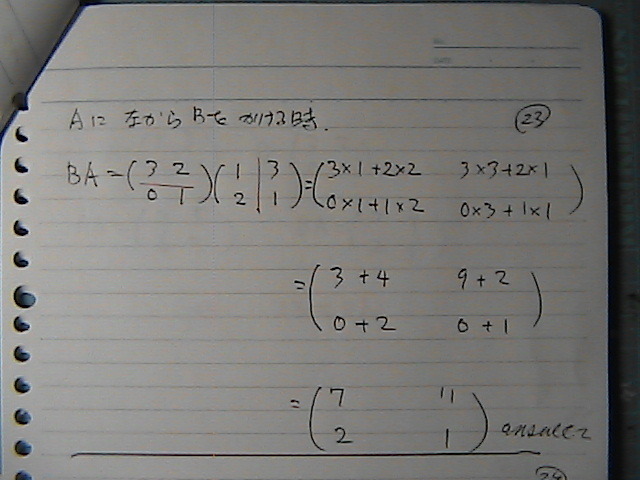 Aに 左から Bを かける時. (23)
BA = (3 2 / 0 1)(1 | 3 / 2 | 1) = (3×1+2×2 3×3+2×1 / 0×1+1×2 0×3+1×1)
= (3+4 9+2 / 0+2 0+1)
= (7 11 / 2 1) answer